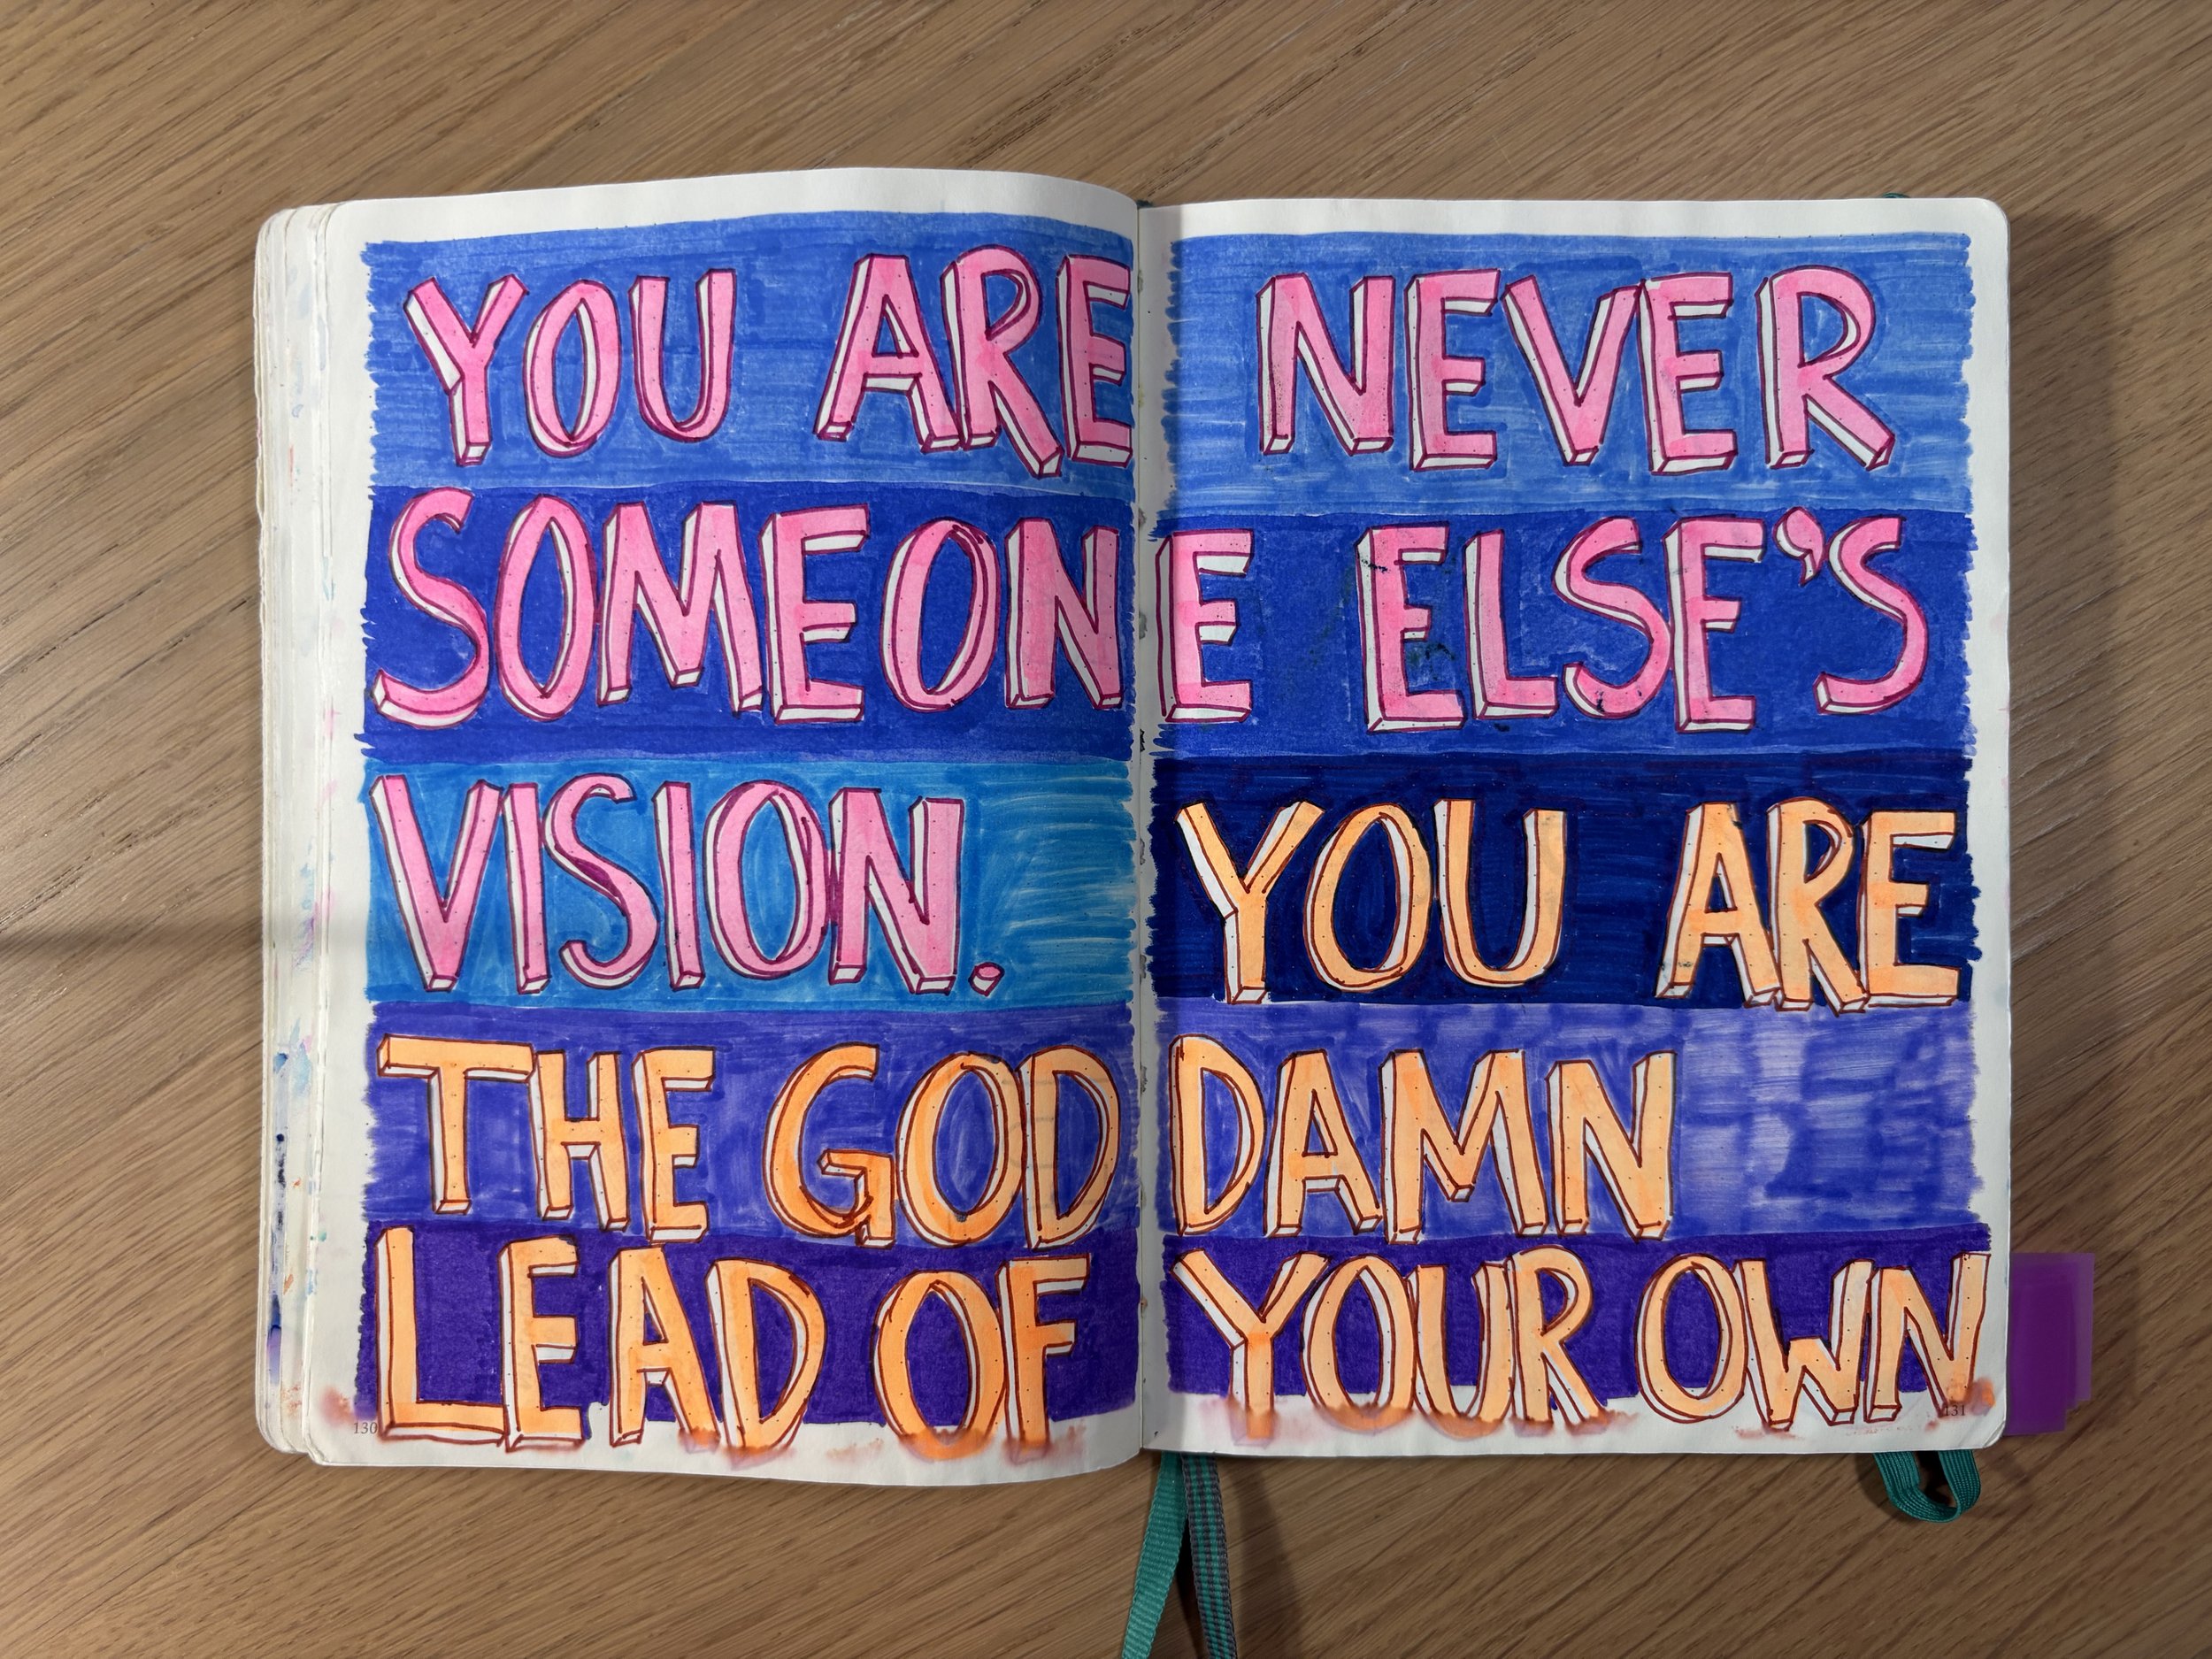 YOU ARE NEVER
SOMEONE ELSE'S
VISION. YOU ARE
THE GOD DAMN
LEAD OF YOUR OWN
130
131